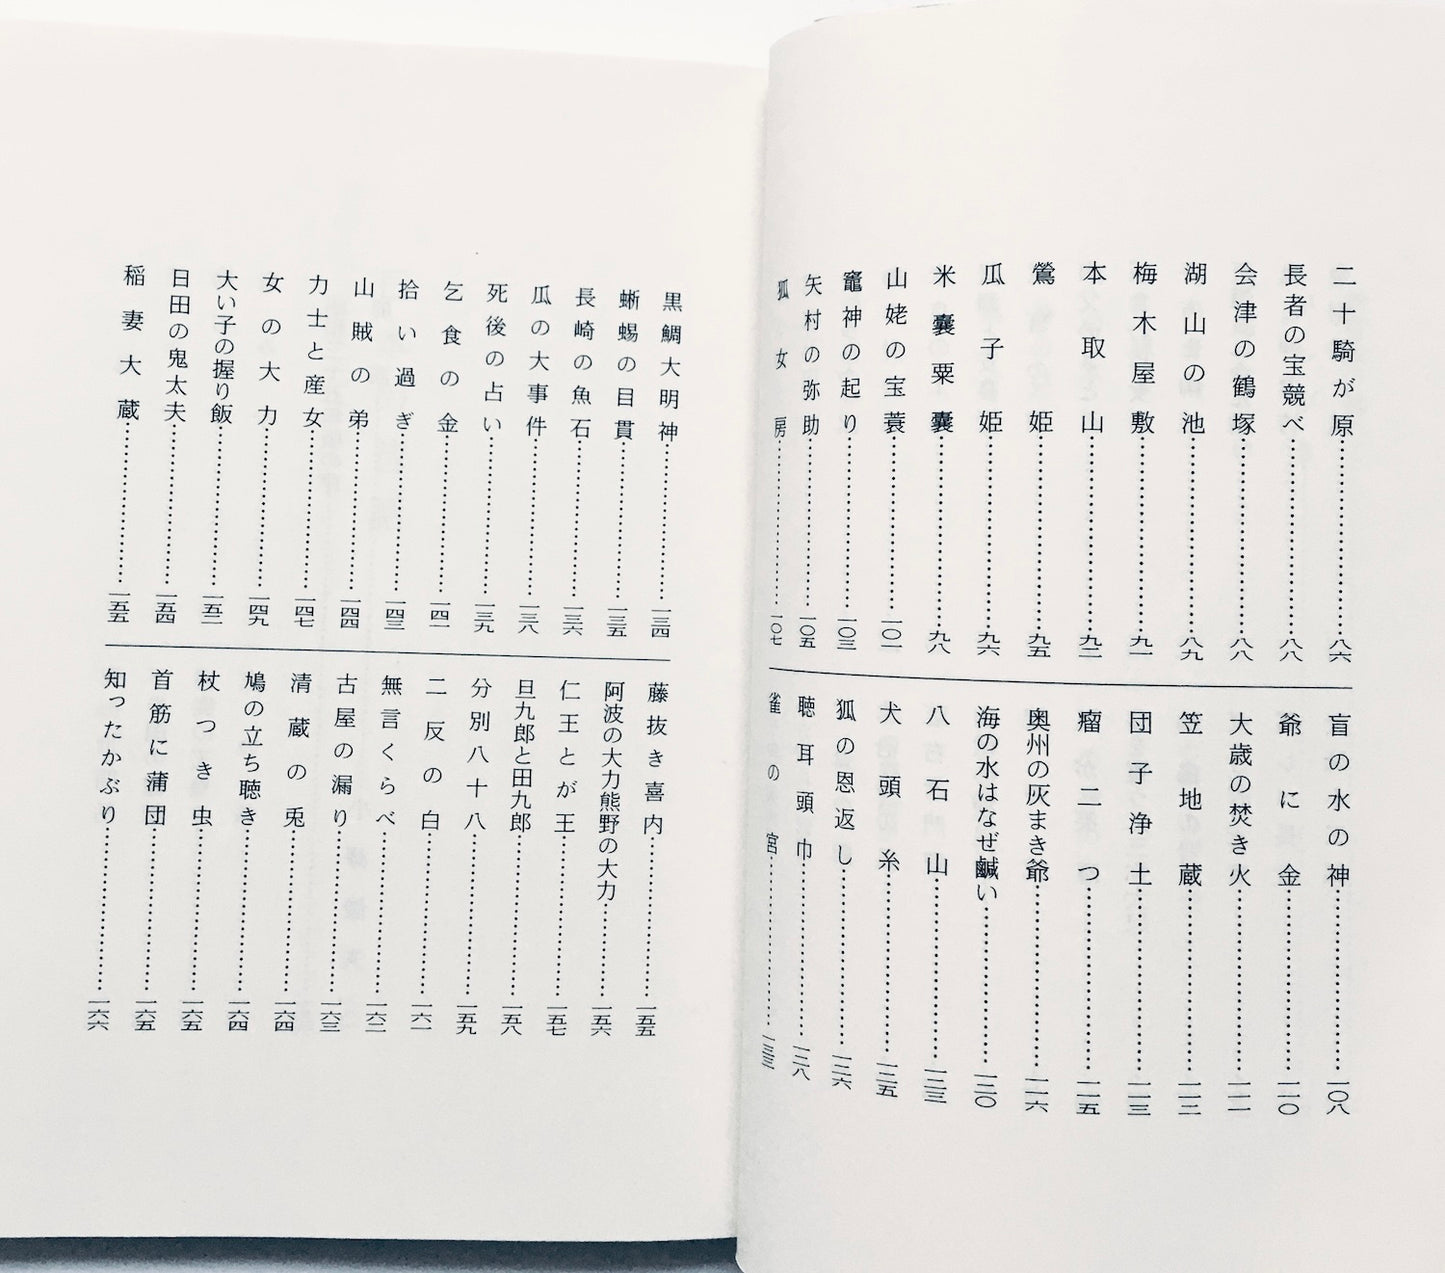 二十騎が原……八六
長者の宝競べ……八八
会津の鶴塚……八八
湖山の池……八九
梅木屋敷……九一
本取山……九二
鶯姫……九五
瓜子姫……九六
米嚢粟嚢……九八
山姥の宝蓑……一〇一
竈神の起り……一〇三
矢村の弥助……一〇五
狐女房……一〇七
盲の水の神……一〇八
爺に金……一一〇
大歳の焚き火……一一一
笠地蔵……一一二
団子浄土……一一三
瘤二つ……一一五
奥州の灰まき爺……一一六
海の水はなぜ鹹い……一二〇
八石山……一二三
犬頭糸……一二五
狐の恩返し……一二六
聴耳頭巾……一二八
雀の宮……一三三
黒鯛大明神……一三四
蜥蜴の目貫……一三五
長崎の魚石……一三六
瓜の大事件……一三八
死後の占い……一三九
乞食の金……一四一
拾い過ぎ……一四三
山賊の弟……一四四
力士と産女……一四七
女の大力……一四九
大い子の握り飯……一五二
日田の鬼太夫……一五四
稲妻大蔵……一五五
藤抜き喜内……一五五
阿波の大力熊野の大力……一五六
仁王とが王……一五七
旦九郎と田九郎……一五八
分別八十八……一五九
二反の白……一六一
無言くらべ……一六二
古屋の漏り……一六三
清蔵の兎……一六四
鳩の立ち聴き……一六四
杖つき虫……一六五
首筋に蒲団……一六五
知ったかぶり……一六六